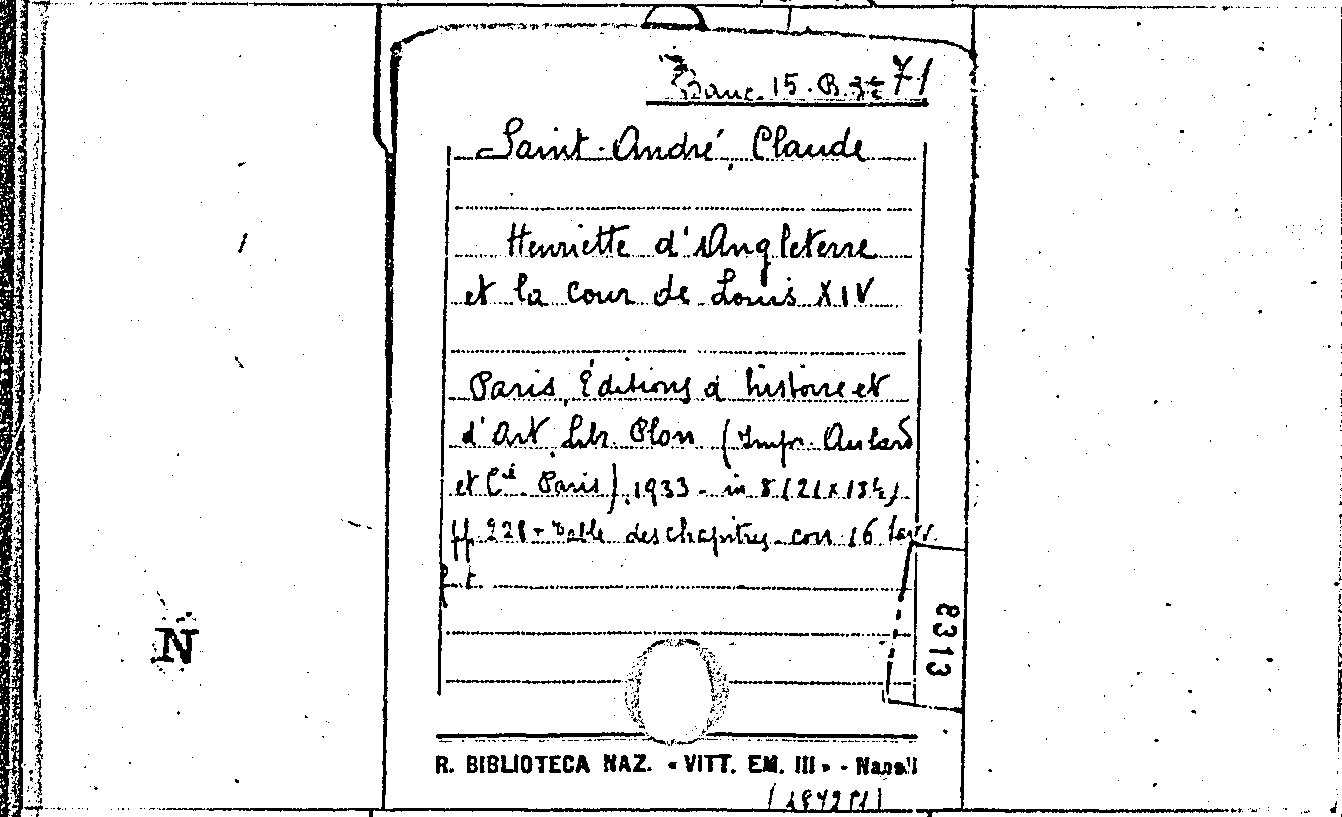 Banc. 15. B. 71
Saint-André, Claude
Henriette d'Angleterre
et la cour de Louis XIV
Paris, Éditions d'histoire et
d'Art, Libr. Plon (Impr. Aulard
et Cie. Paris), 1933 - in 8 (21x13½)
pp. 228 + Table des chapitres - con 16 tavv.
f. t.
8313
N
R. BIBLIOTECA NAZ. « VITT. EM. III » - Napoli